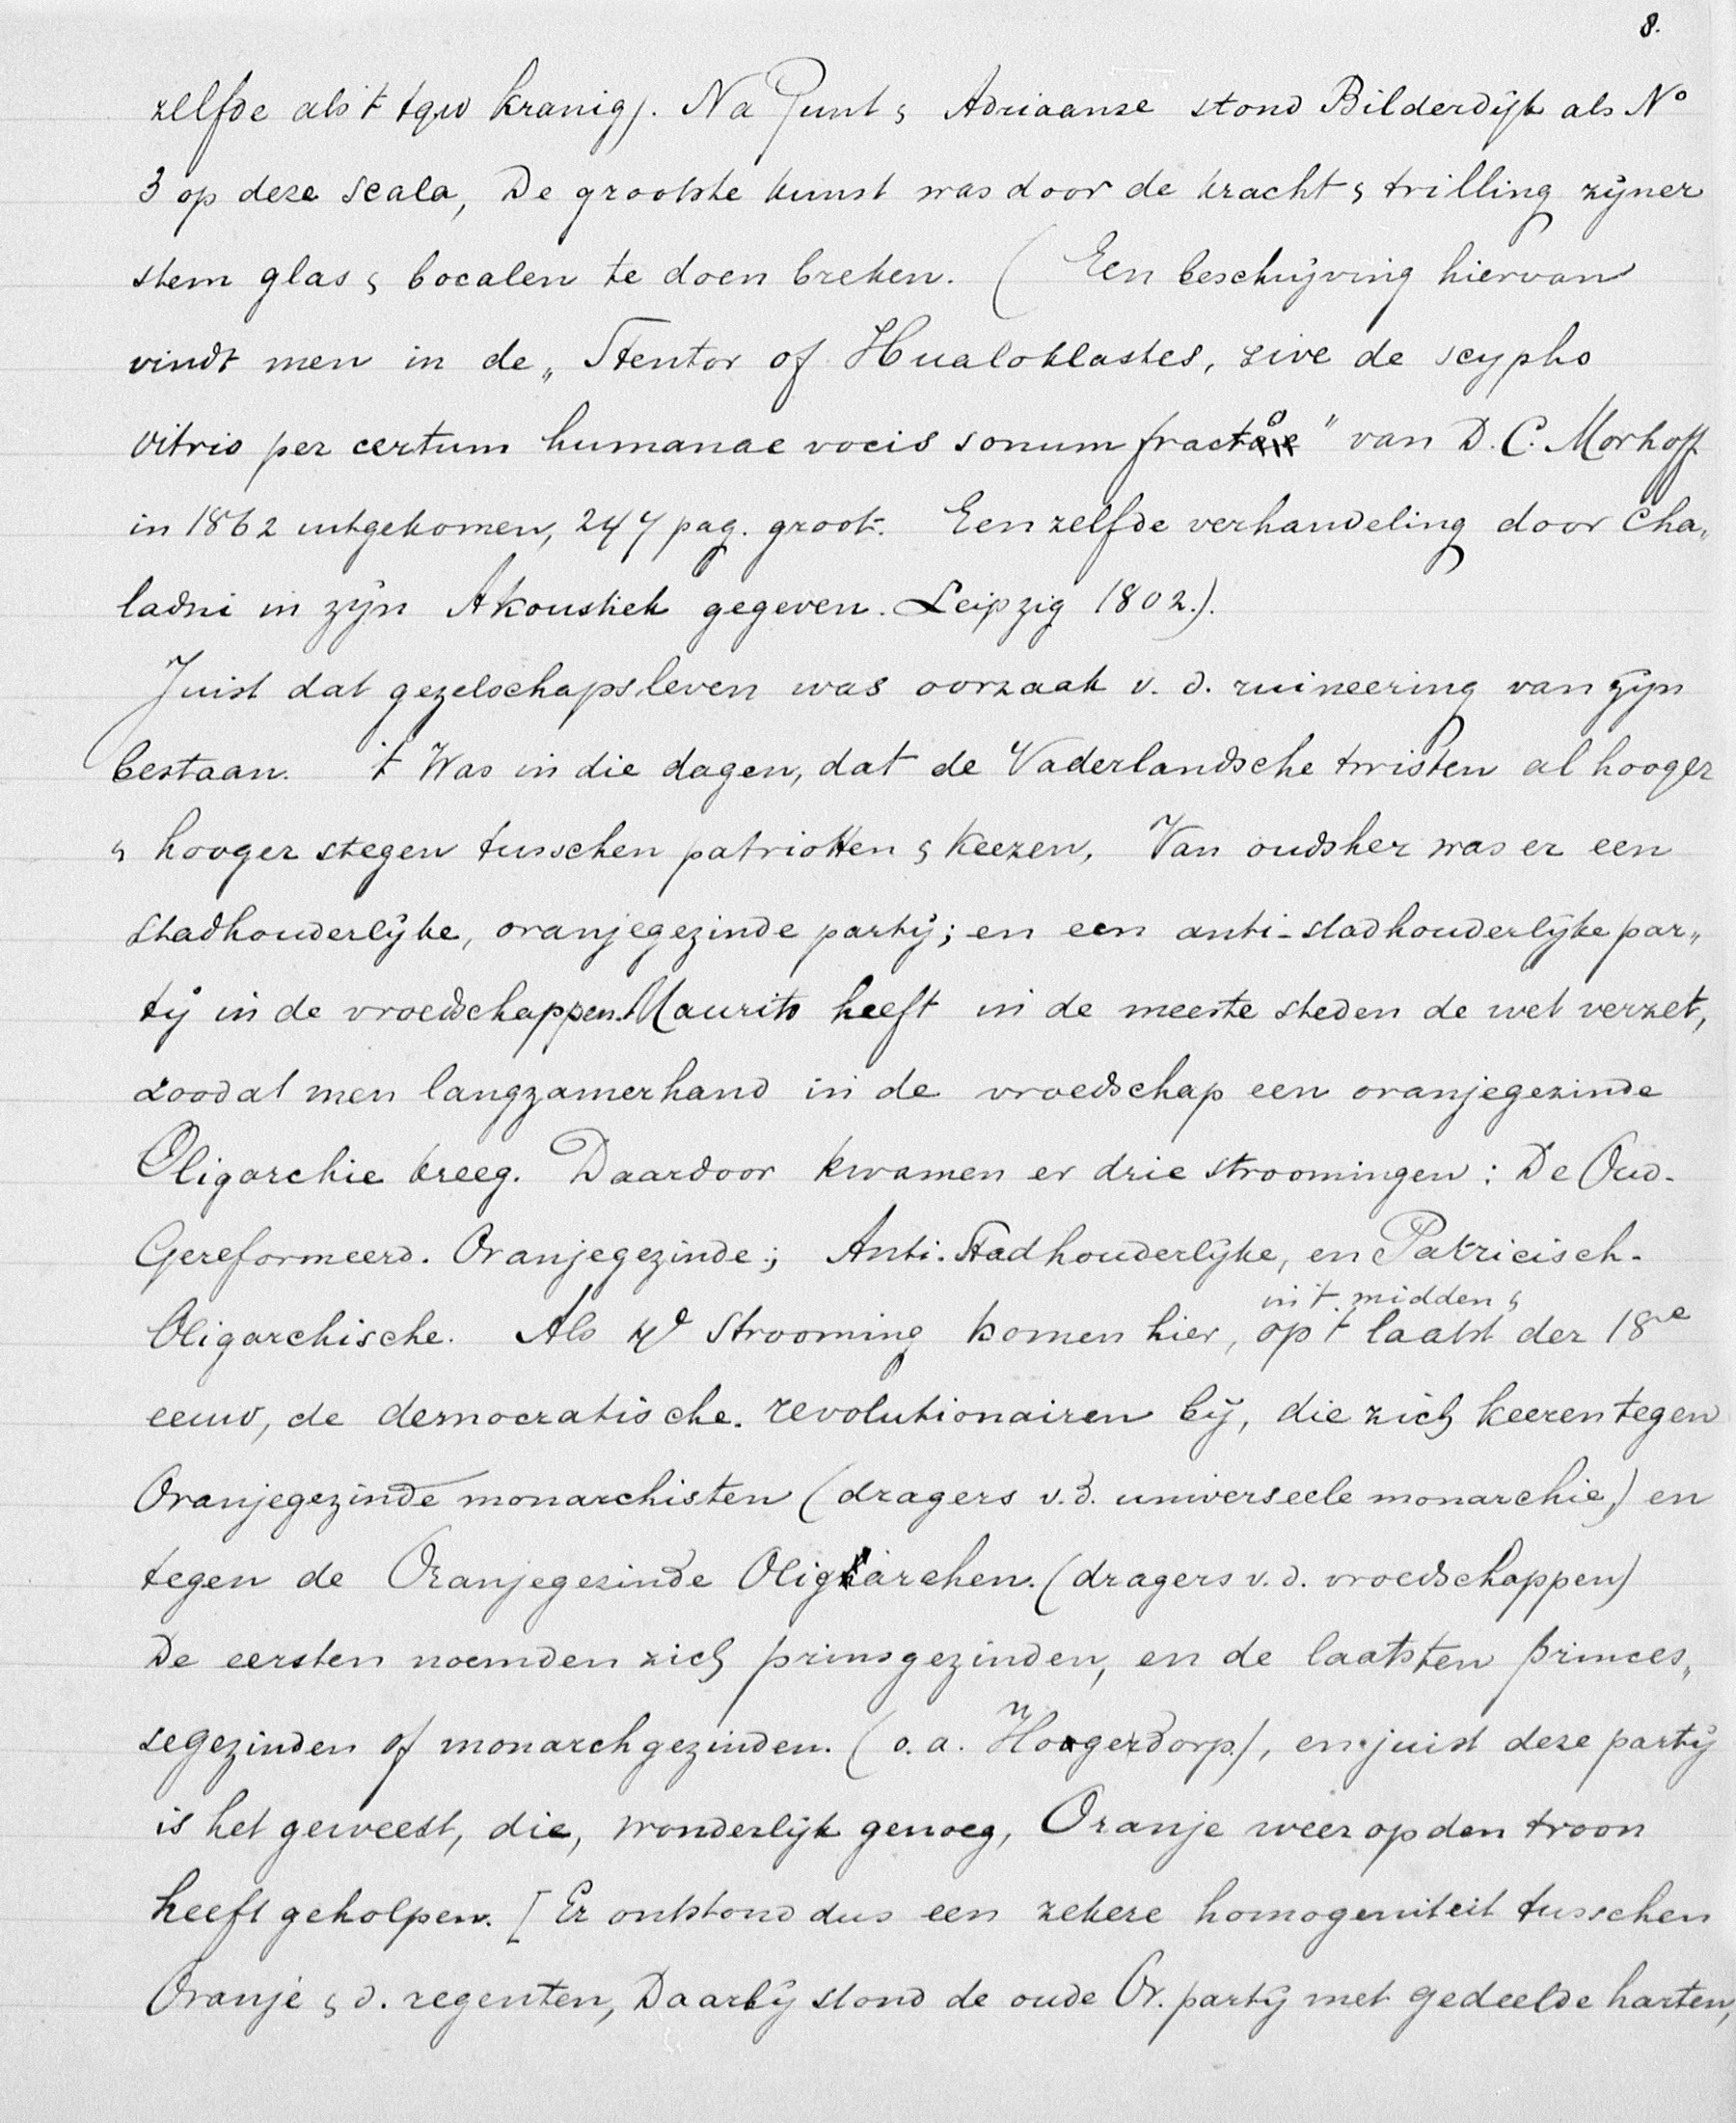 8.
zelfde als 't tgw kranig). Na Punt & Adriaanse stond Bilderdijk als No
3 op deze scala, De grootste kunst was door de kracht & trilling zijner
stem glas & bocalen te doen breken. ( Een beschrijving hiervan
vindt men in de „ Stentor of Hualoklastes, sive de scypho
vitrio per certum humanae vocis sonum fracto" van D. C. Morhoff
in 1862 uitgekomen, 247 pag. groot. Eenzelfde verhandeling door Cha„
ladni in zijn Akoustiek gegeven. Leipzig 1802.).
Juist dat gezelschapsleven was oorzaak v. d. ruineering van zijn
bestaan. 't Was in die dagen, dat de Vaderlandsche twisten al hooger
& hooger stegen tusschen patriotten & Keezen, Van oudsher was er een
stadhouderlijke, oranjegezinde partij; en een anti-stadhouderlijke par„
tij in de vroedschappen. Maurits heeft in de meeste steden de wet verzet,
zoodat men langzamerhand in de vroedschap een oranjegezinde
Oligarchie kreeg. Daardoor kwamen er drie stroomingen: De Oud-
Gereformeerd. Oranjegezinde; Anti-Stadhouderlijke, en Patricisch-
in 't midden &
Oligarchische. Als 4e strooming komen hier, op 't laatst der 18de
eeuw, de democratische revolutionairen bij, die zich keeren tegen
Oranjegezinde monarchisten (dragers v. d. universeele monarchie) en
tegen de Oranjegezinde Oligarchen. (dragers v. d. vroedschappen)
De eersten noemden zich prinsgezinden, en de laatsten princes„
segezinden of monarchgezinden. (o. a. Hogendorp), en juist deze partij
is het geweest, die, wonderlijk genoeg, Oranje weer op den troon
heeft geholpen. [Er ontstond dus een zekere homogeniteit tusschen
Oranje & d. regenten, Daarbij stond de oude Or. partij met gedeelde harten,